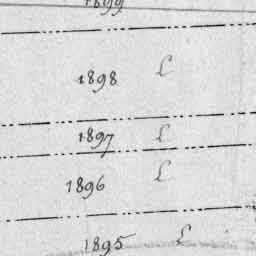 1899
1898 L
1897 L
1896 L
1895 L